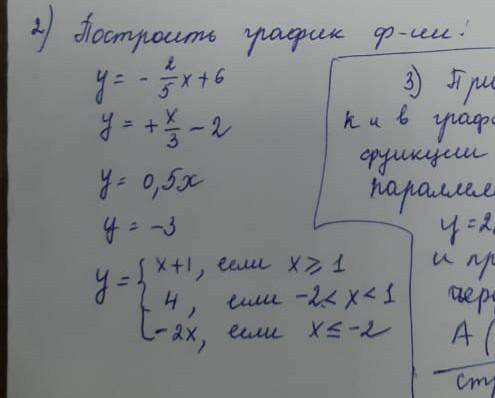 2) Построить график ф-ии:
y = - 2/5 x + 6
y = + x/3 - 2
y = 0,5x
y = -3
y = { x+1, если x ⩾ 1
4, если -2 < x < 1
-2x, если x ≤ -2
3) При
k и в граф
функции
параллел
y = 2
и пр
A (